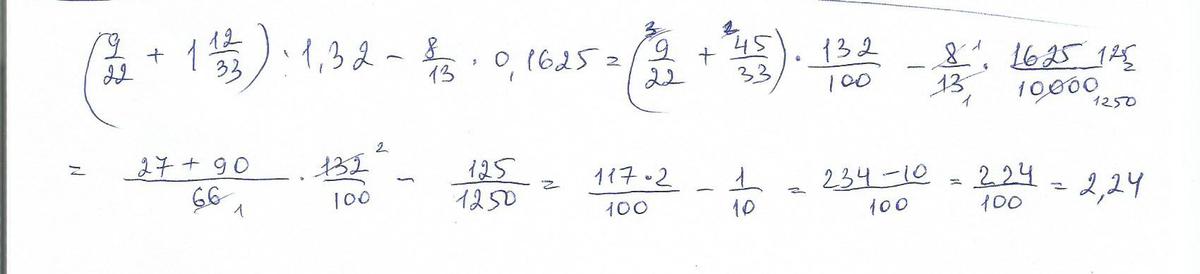 (9/22 + 1 12/33) · 1,32 - 8/13 · 0,1625 = (³9/22 + ²45/33) · 132/100 - 8¹/13₁ · 1625 125/10000 1250 =
= 27+90/66₁ · 132²/100 - 125/1250 = 117·2/100 - 1/10 = 234-10/100 = 224/100 = 2,24